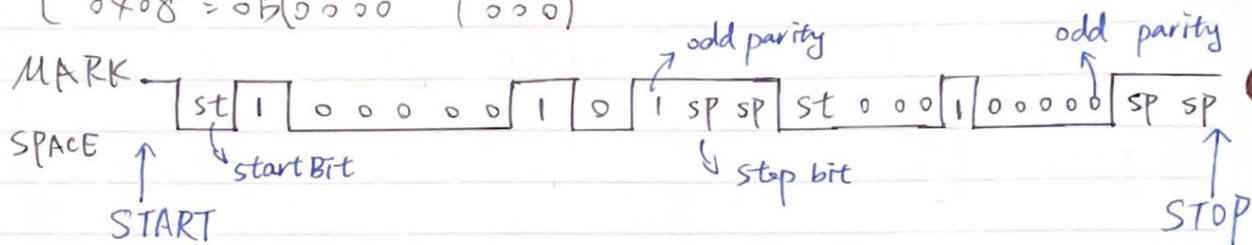 0x08 = 0b(0000 1000)
odd parity odd parity
MARK
st 1 0 0 0 0 0 1 0 1 sp sp st 0 0 0 1 0 0 0 0 0 sp sp
SPACE
start Bit stop bit
START STOP